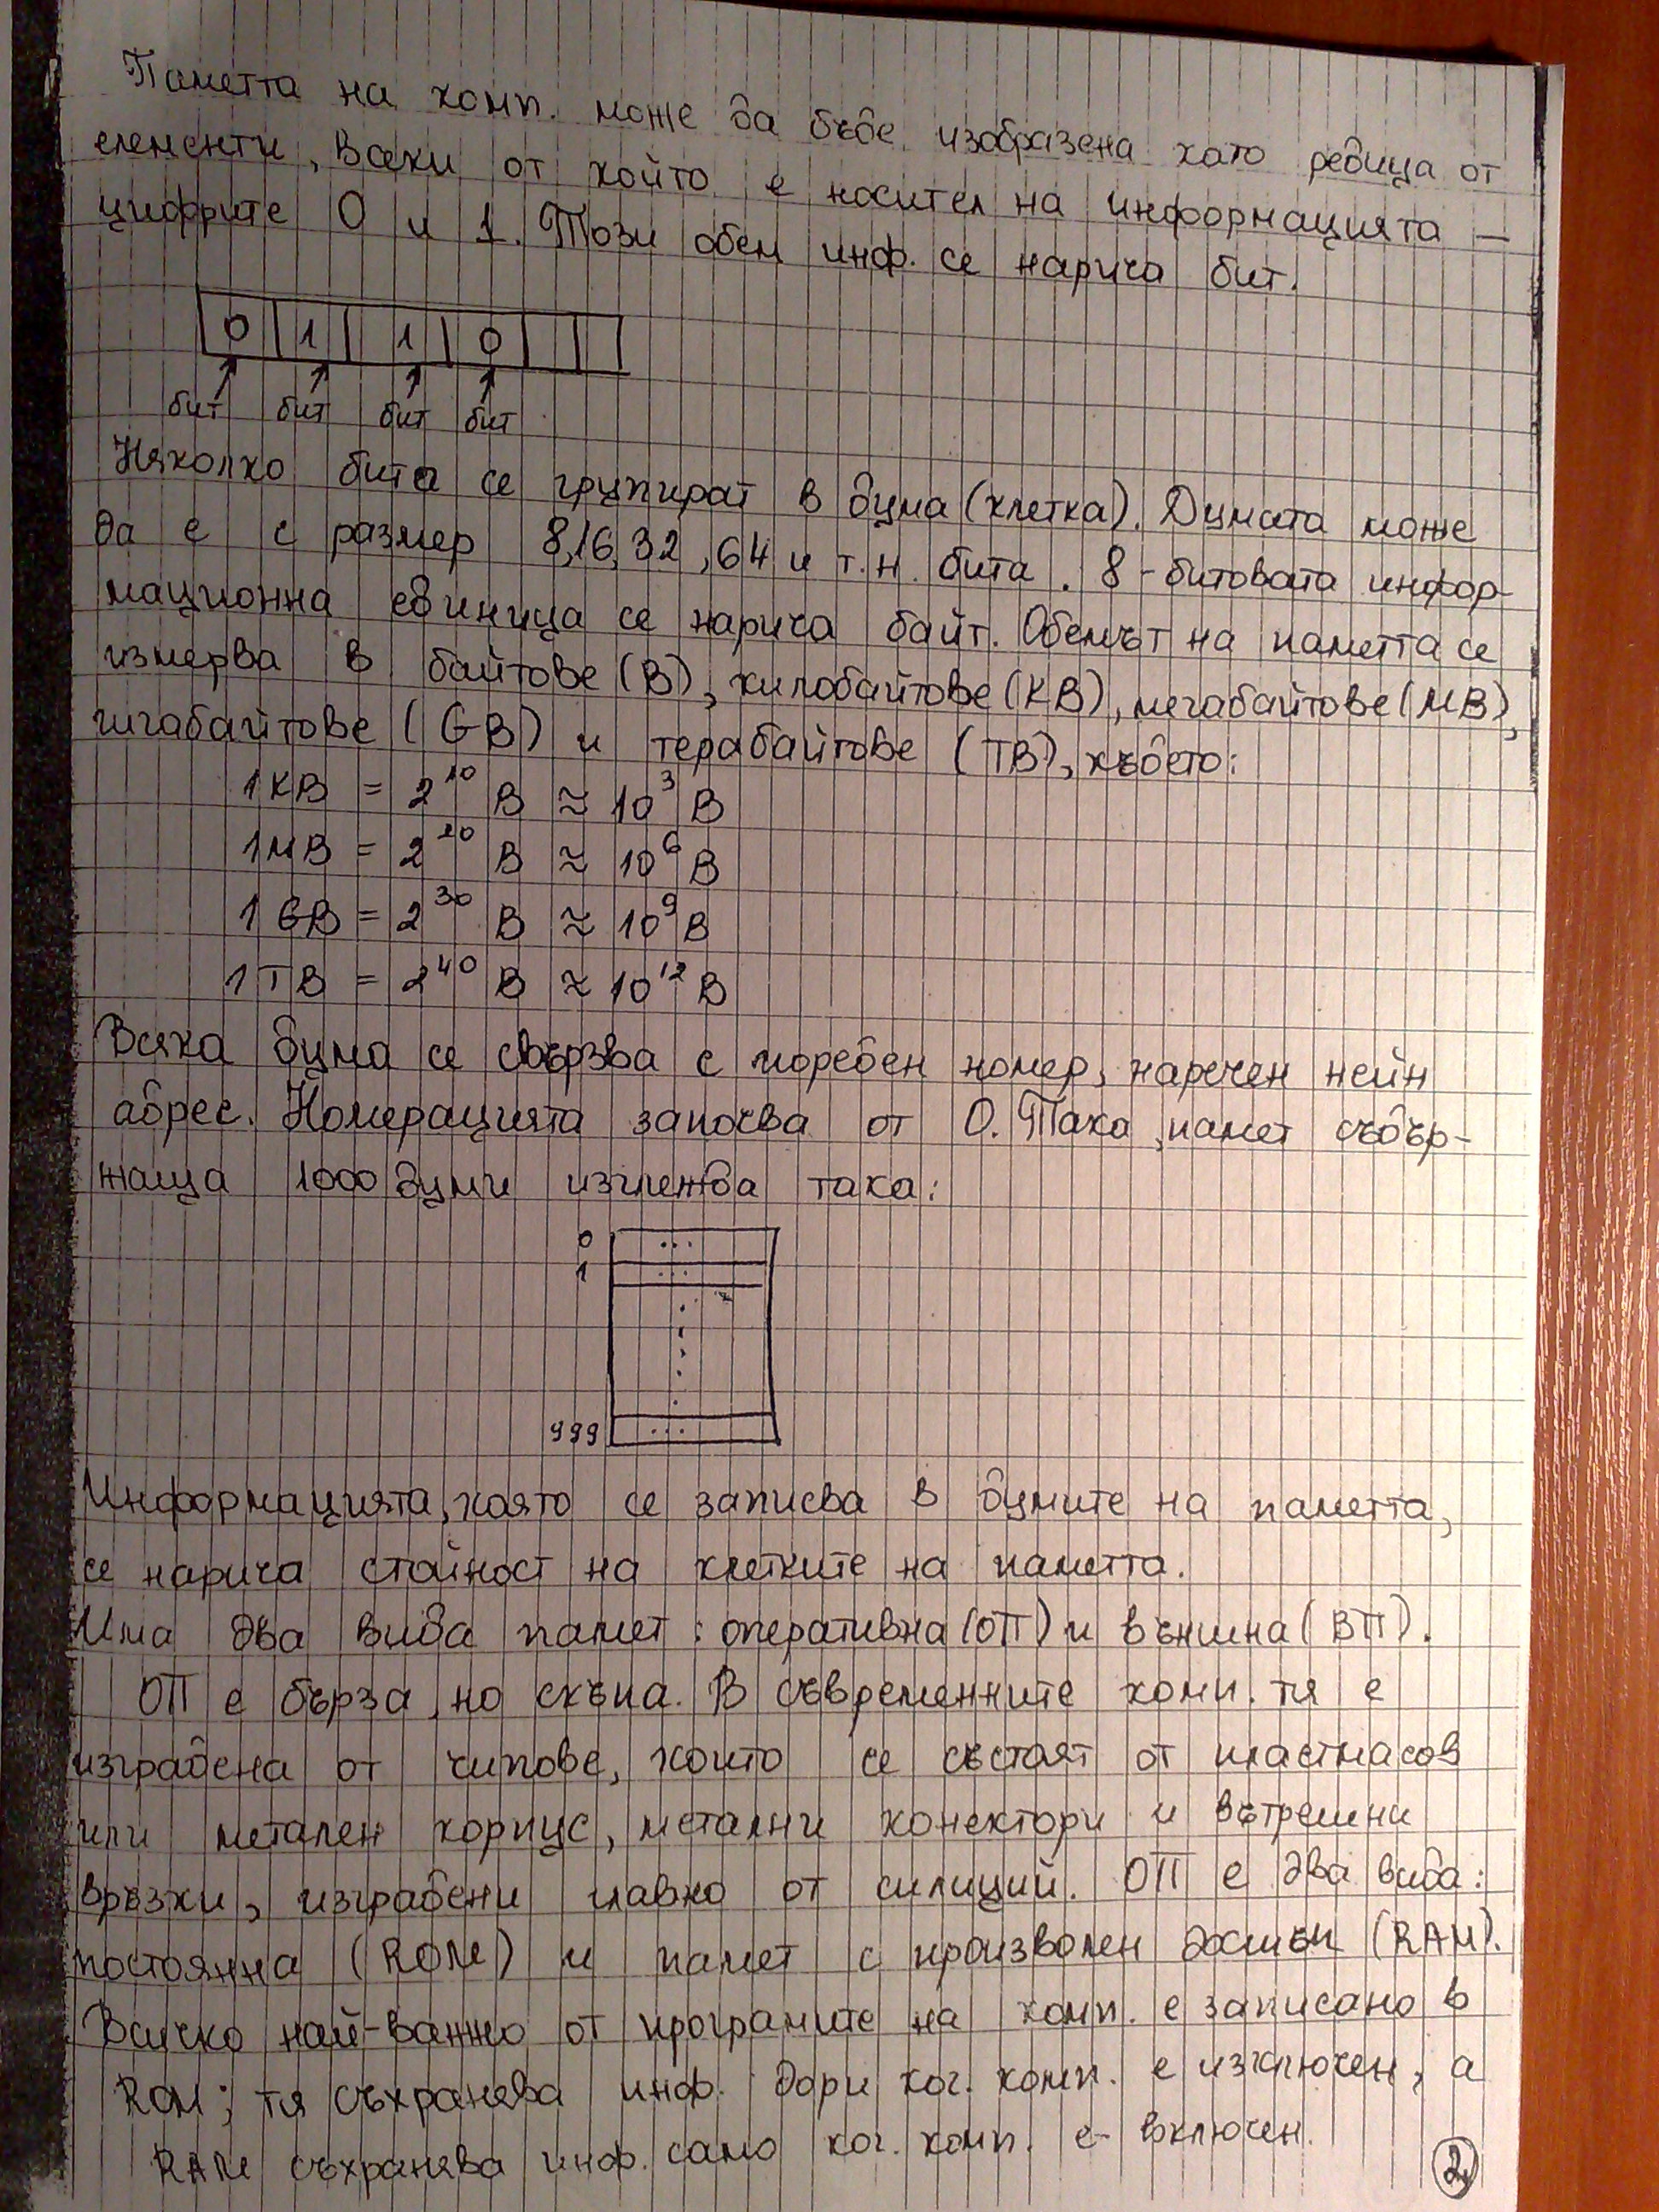 Паметта на комп. може да бъде изобразена като редица от
елементи, всеки от който е носител на информацията –
цифрите 0 и 1. Този обем инф. се нарича бит.
0 1 1 0
бит бит бит бит
Няколко бита се групират в дума (клетка). Думата може
да е с размер 8,16,32,64 и т.н. бита. 8-битовата инфор-
мационна единица се нарича байт. Обемът на паметта се
измерва в байтове (B), килобайтове (KB), мегабайтове (MB),
гигабайтове (GB) и терабайтове (TB), където:
1KB = 2¹⁰ B ≈ 10³ B
1MB = 2²⁰ B ≈ 10⁶ B
1GB = 2³⁰ B ≈ 10⁹ B
1TB = 2⁴⁰ B ≈ 10¹² B
Всяка дума се свързва с пореден номер, наречен нейн
адрес. Номерацията започва от 0. Така, памет съдър-
жаща 1000 думи изглежда така:
0 ...
1 ...
999 ...
Информацията, която се записва в думите на паметта,
се нарича стойност на клетките на паметта.
Има два вида памет: оперативна (ОП) и външна (ВП).
ОП е бърза, но скъпа. В съвременните комп. тя е
изградена от чипове, които се състоят от пластмасов
или метален корпус, метални конектори и вътрешни
връзки, изградени главно от силиций. ОП е два вида:
постоянна (ROM) и памет с произволен достъп (RAM).
Всичко най-важно от програмите на комп. е записано в
ROM; тя съхранява инф. дори ког. комп. е изключен, а
RAM съхранява инф. само ког. комп. е включен.
2